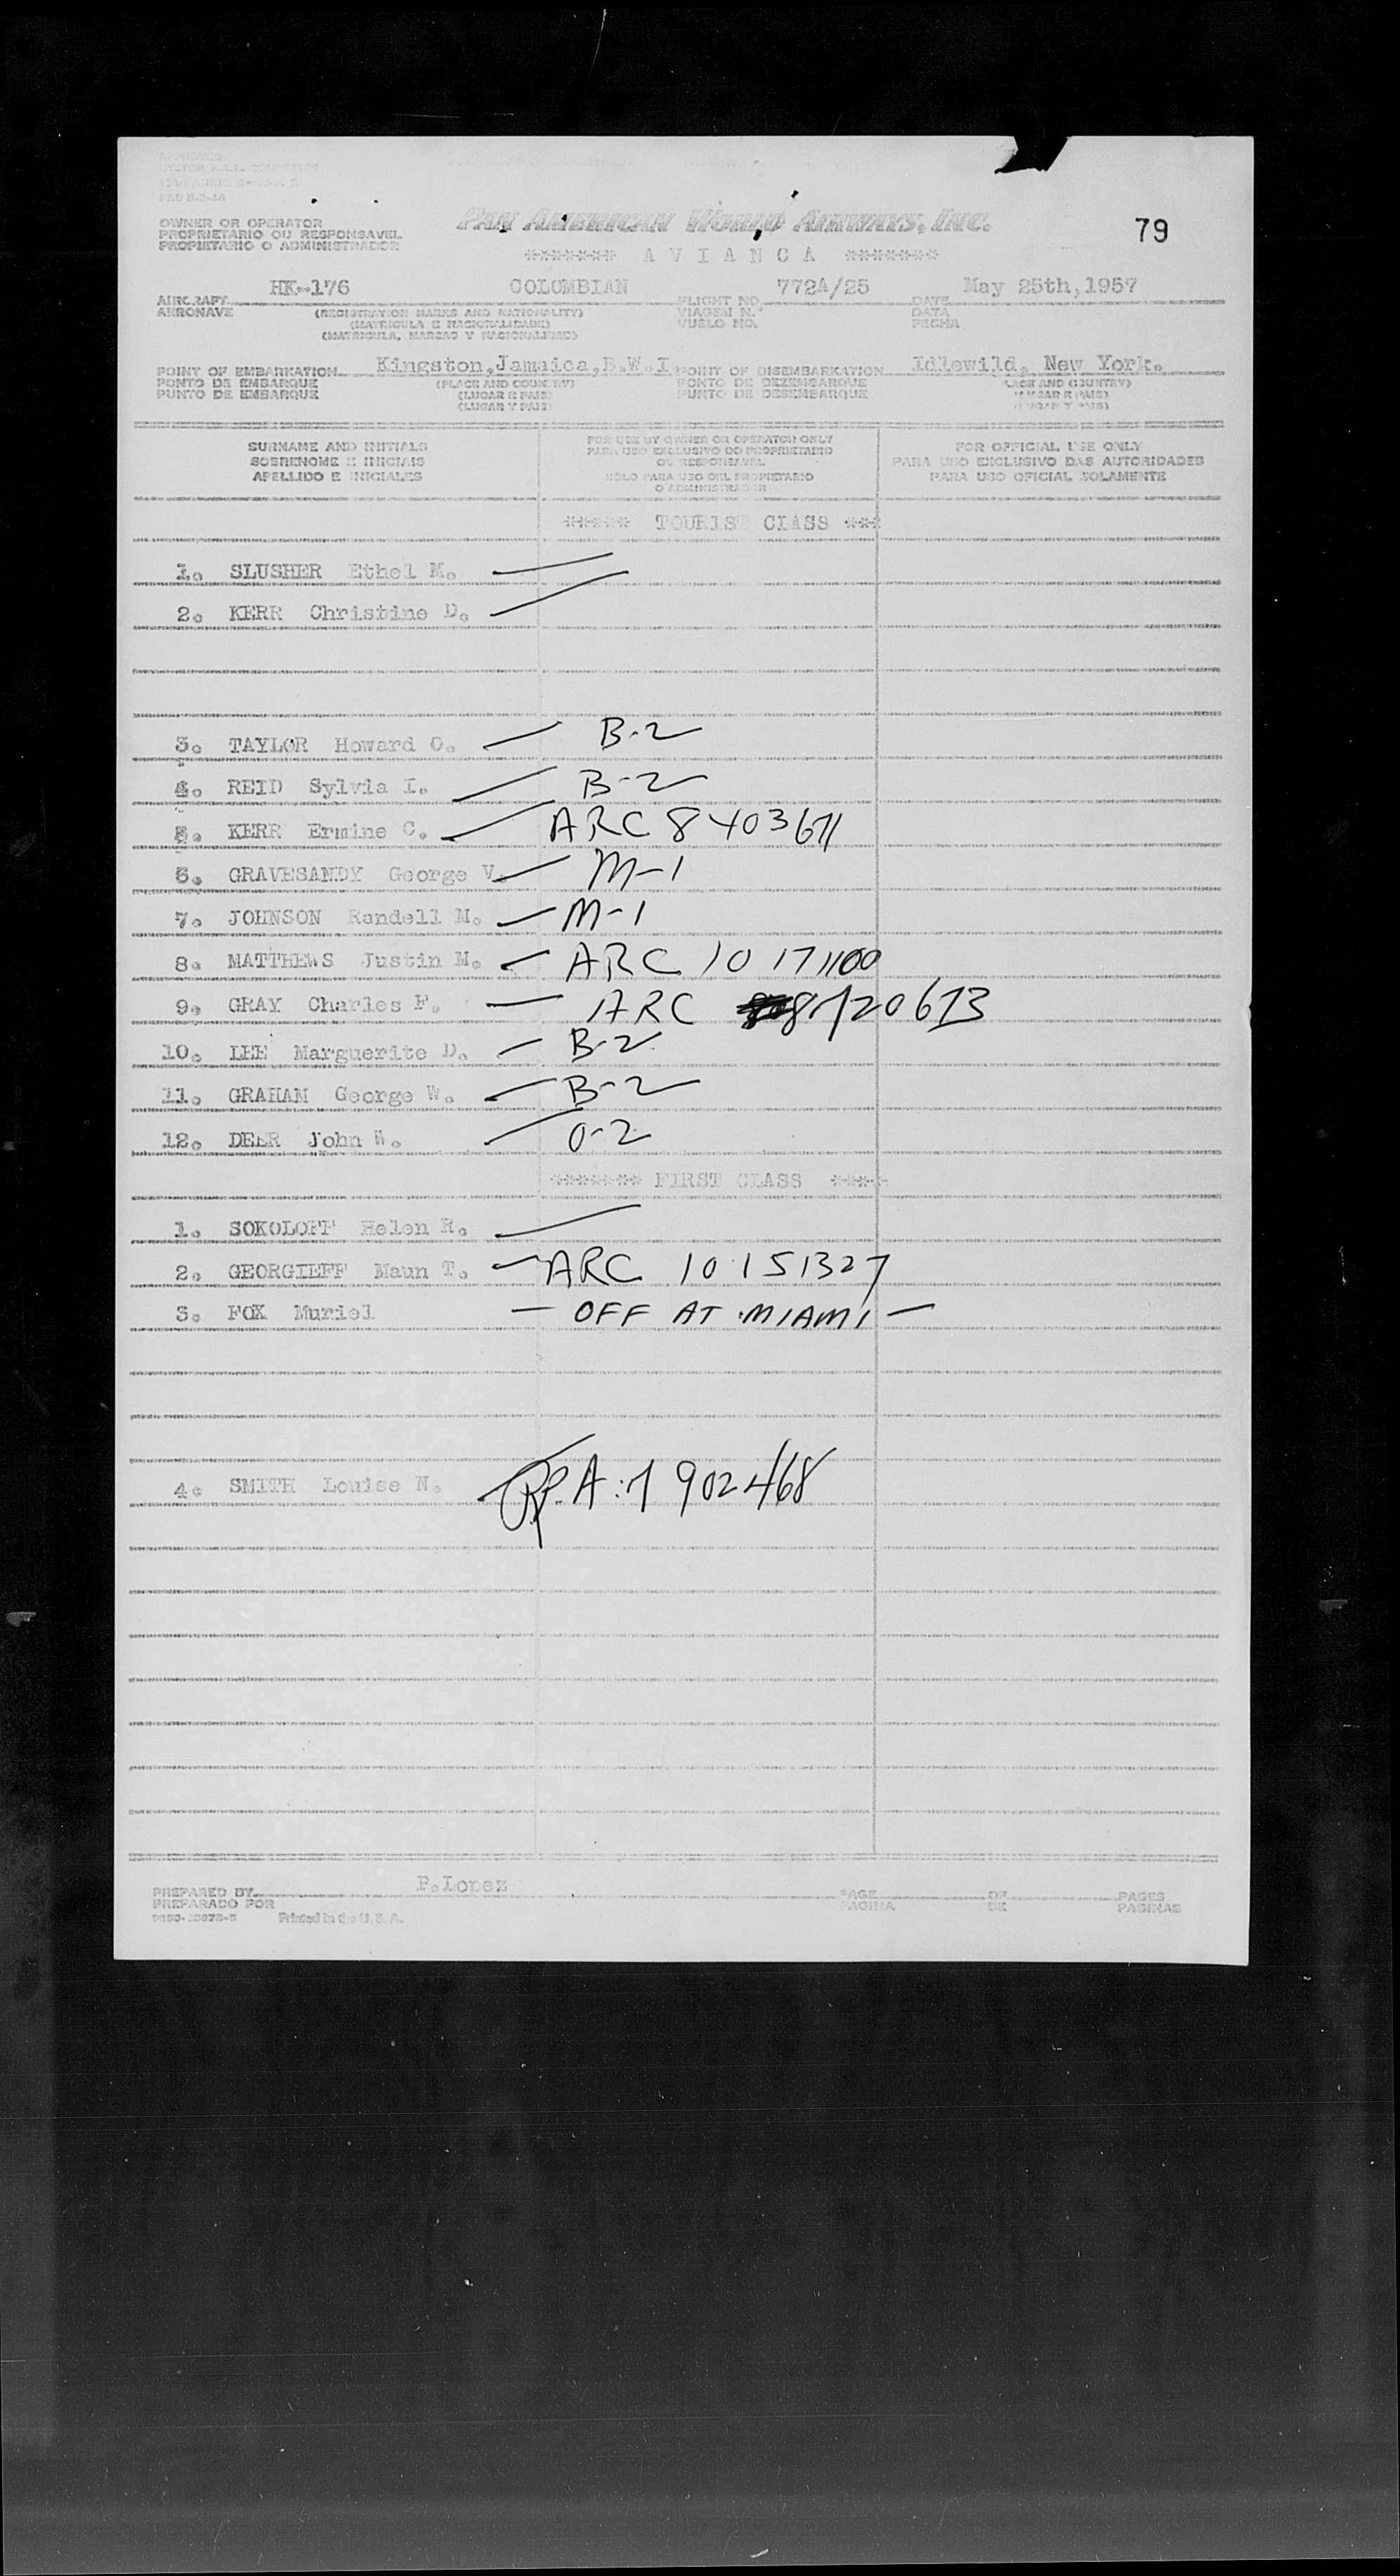 OWNER OR OPERATOR
PROPRIETARIO OU RESPONSAVEL
PROPIETARIO O ADMINISTRADOR
PAN AMERICAN WORLD AIRWAYS, INC.
79
******* A V I A N C A *******
HK-176 COLOMBIAN 772A/25 May 25th,1957
AIRCRAFT FLIGHT NO. DATE
AERONAVE (REGISTRATION MARKS AND NATIONALITY) VIAGEM N.° DATA
(MATRICULA E NACIONALIDADE) VUELO NO. FECHA
(MATRICULA, MARCAS Y NACIONALIDAD)
Kingston,Jamaica,B.W.I. Idlewild, New York.
POINT OF EMBARKATION POINT OF DISEMBARKATION
PONTO DE EMBARQUE (PLACE AND COUNTRY) PONTO DE DEZEMBARQUE (PLACE AND COUNTRY)
PUNTO DE EMBARQUE (LUGAR E PAIS) PUNTO DE DESEMBARQUE (LUGAR E PAIS)
(LUGAR Y PAIS) (LUGAR Y PAIS)
SURNAME AND INITIALS
SOBRENOME E INICIAIS
APELLIDO E INICIALES
FOR USE BY OWNER OR OPERATOR ONLY
PARA USO EXCLUSIVO DO PROPRIETARIO
OU RESPONSAVEL
SOLO PARA USO DEL PROPIETARIO
O ADMINISTRADOR
FOR OFFICIAL USE ONLY
PARA USO EXCLUSIVO DAS AUTORIDADES
PARA USO OFICIAL SOLAMENTE
***** TOURIST CLASS ***
1. SLUSHER Ethel M.
2. KERR Christine D.
3. TAYLOR Howard O. B-2
4. REID Sylvia I. B-2
5. KERR Ermine C. ARC 8403671
6. GRAVESANDY George V. M-1
7. JOHNSON Randell M. M-1
8. MATTHEWS Justin M. ARC 10 171100
9. GRAY Charles F. ARC
10. LEE Marguerite D. B-2
11. GRAHAM George W. B-2
12. DEER John W. O-2
******* FIRST CLASS ****
1. SOKOLOFF Helen R.
2. GEORGIEFF Maun T. ARC 10 151327
3. FOX Muriel - OFF AT MIAMI -
4. SMITH Louise N.
P.Lopez
PREPARED BY PAGE OF PAGES
PREPARADO POR PAGINA DE PAGINAS
Printed in the U.S.A.